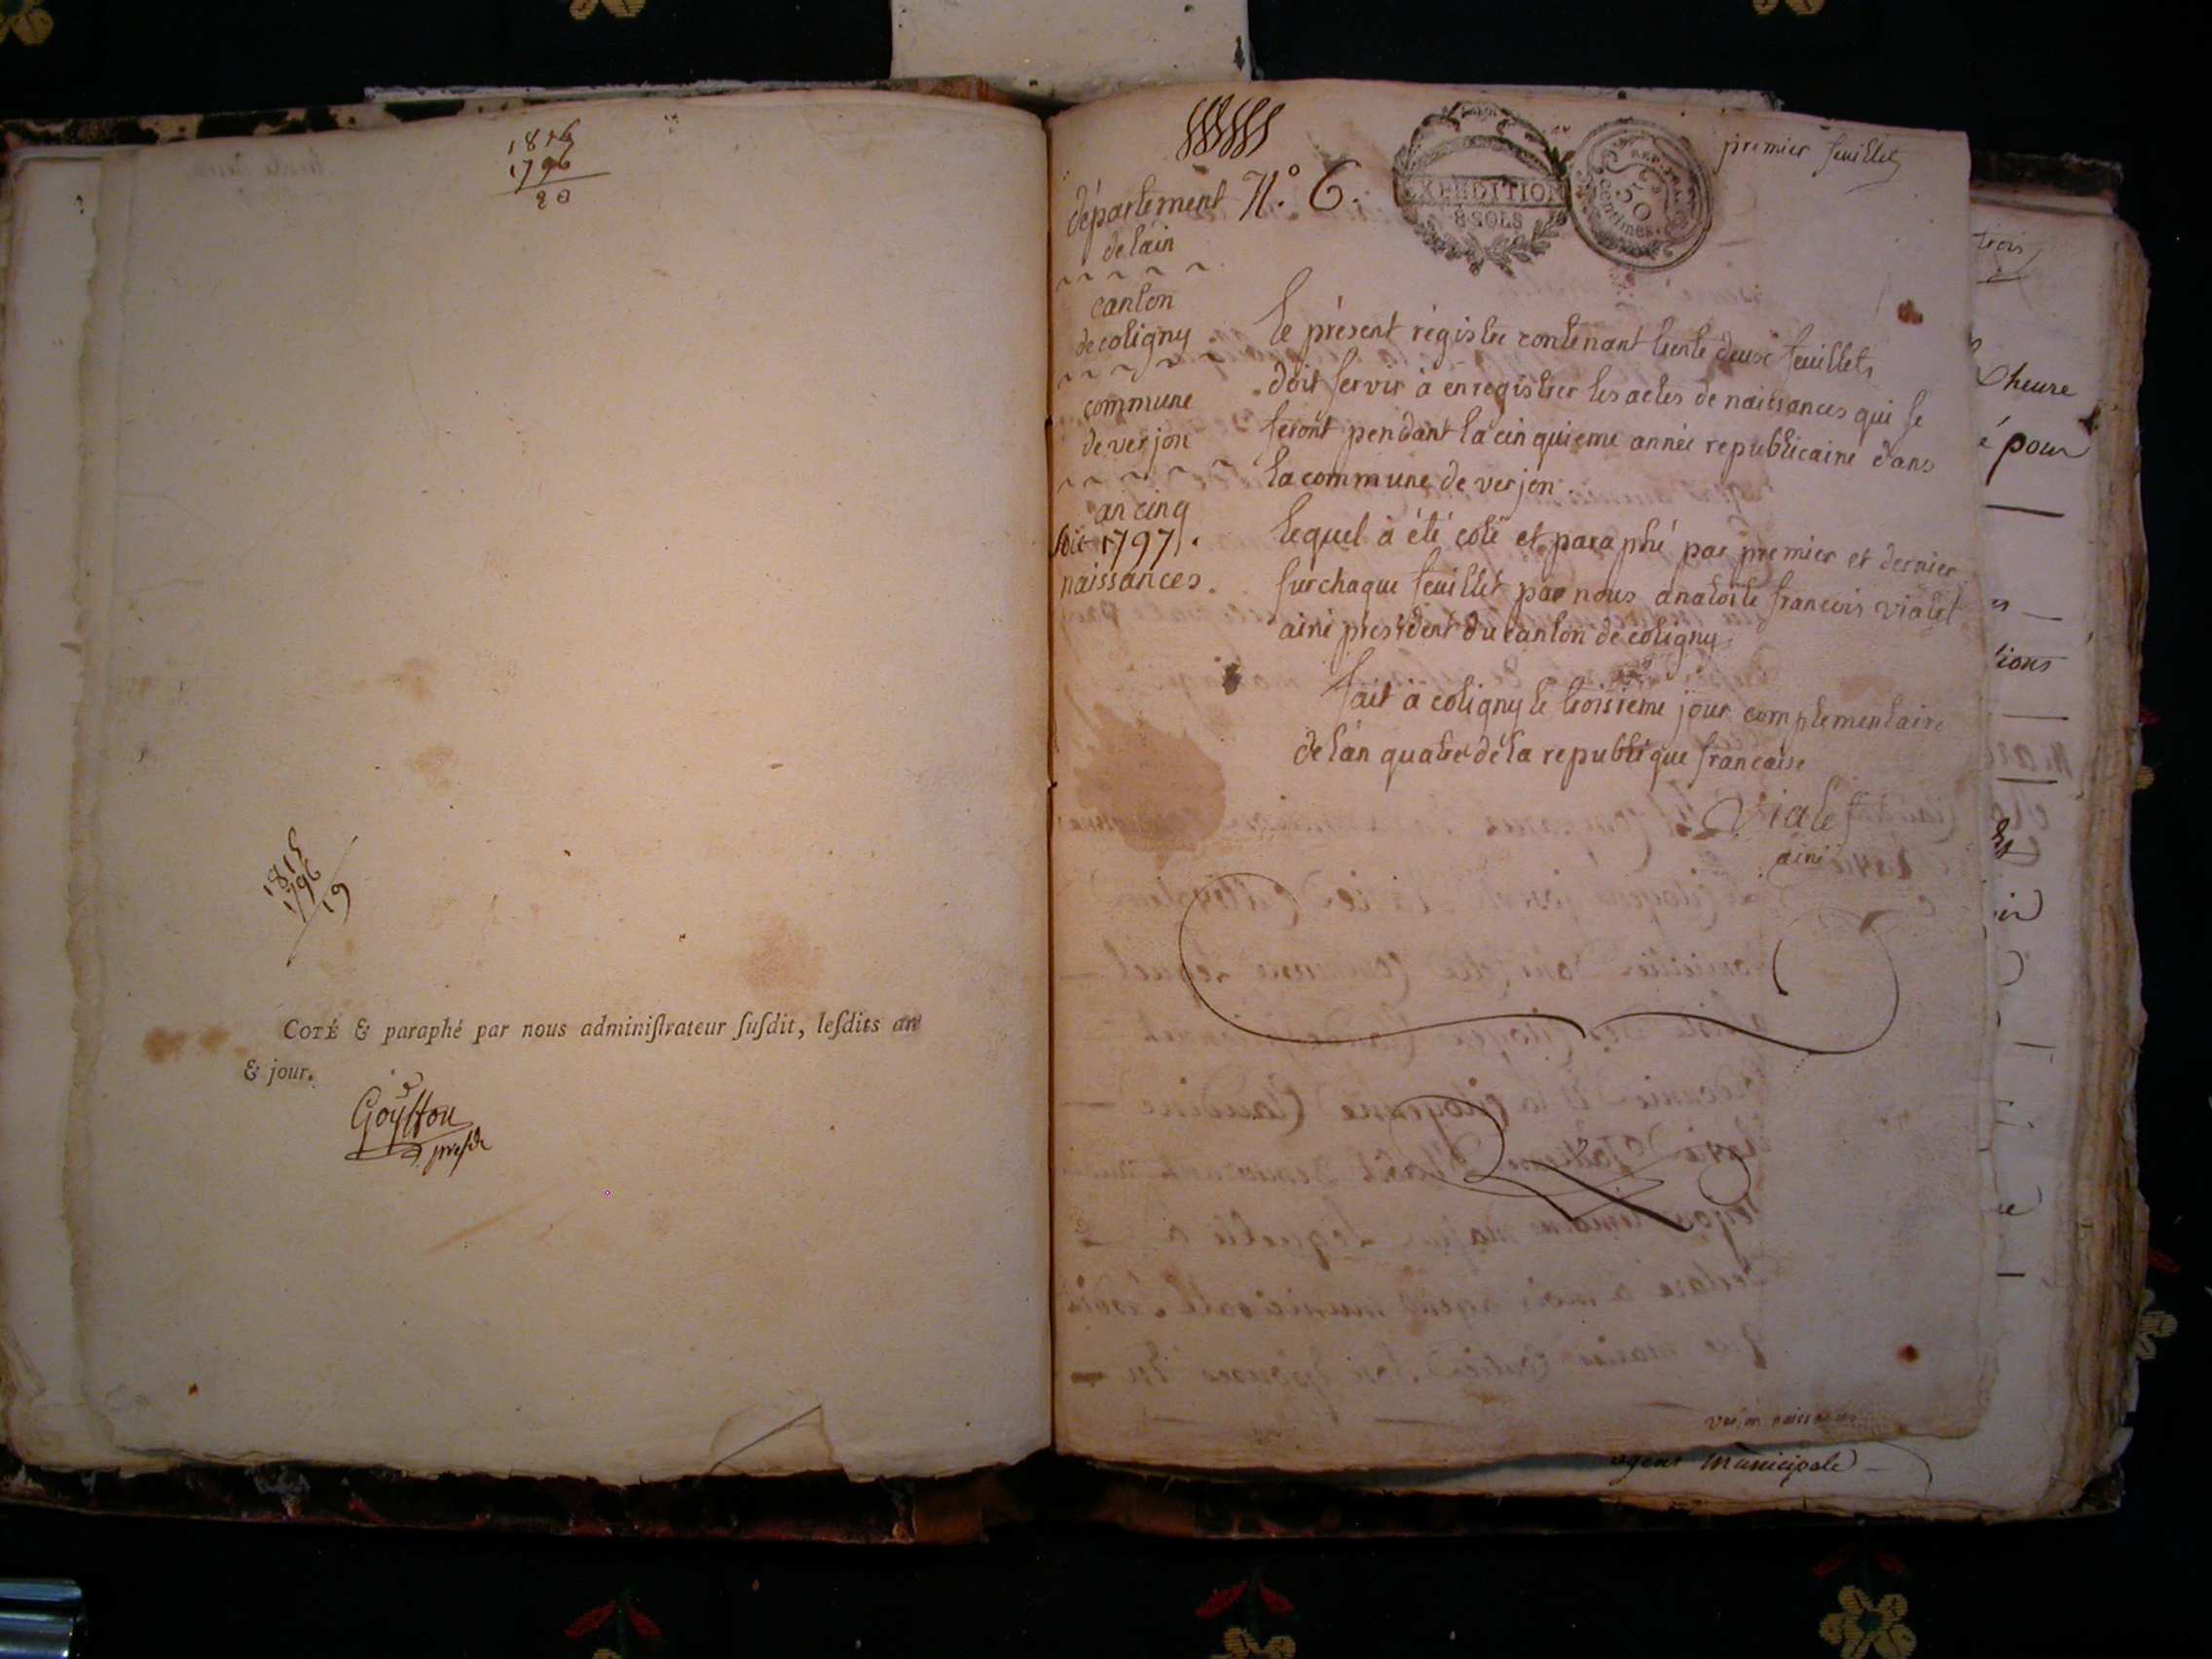 1816
1796
20
1815
1796
19
COTÉ & paraphé par nous adminiſtrateur ſuſdit, leſdits an
& jour.
Goÿffon
preſdt
premier feuillet
N.° 6.
EXPEDITION
8 SOLS
50
centimes
département
de láin
canton
de coligny
commune
de verjon
an cinq
soit 1797.
naissances.
le présent régistre contenant trente deux feuillets
doit servir à enregistrer les actes de naissances qui se
feront pendant la cinquieme année republicaine dans
la commune de verjon.
lequel à été coté et paraphé par premier et dernier
sur chaque feuillet par nous anatoile francois vialet
ainé president du canton de coligny.
fait à coligny le troisieme jour complementaire
de lán quatre de la republique francaise
Vialet
ainé
verjon naissances
trois
heure
é pour
tions
agent municipale